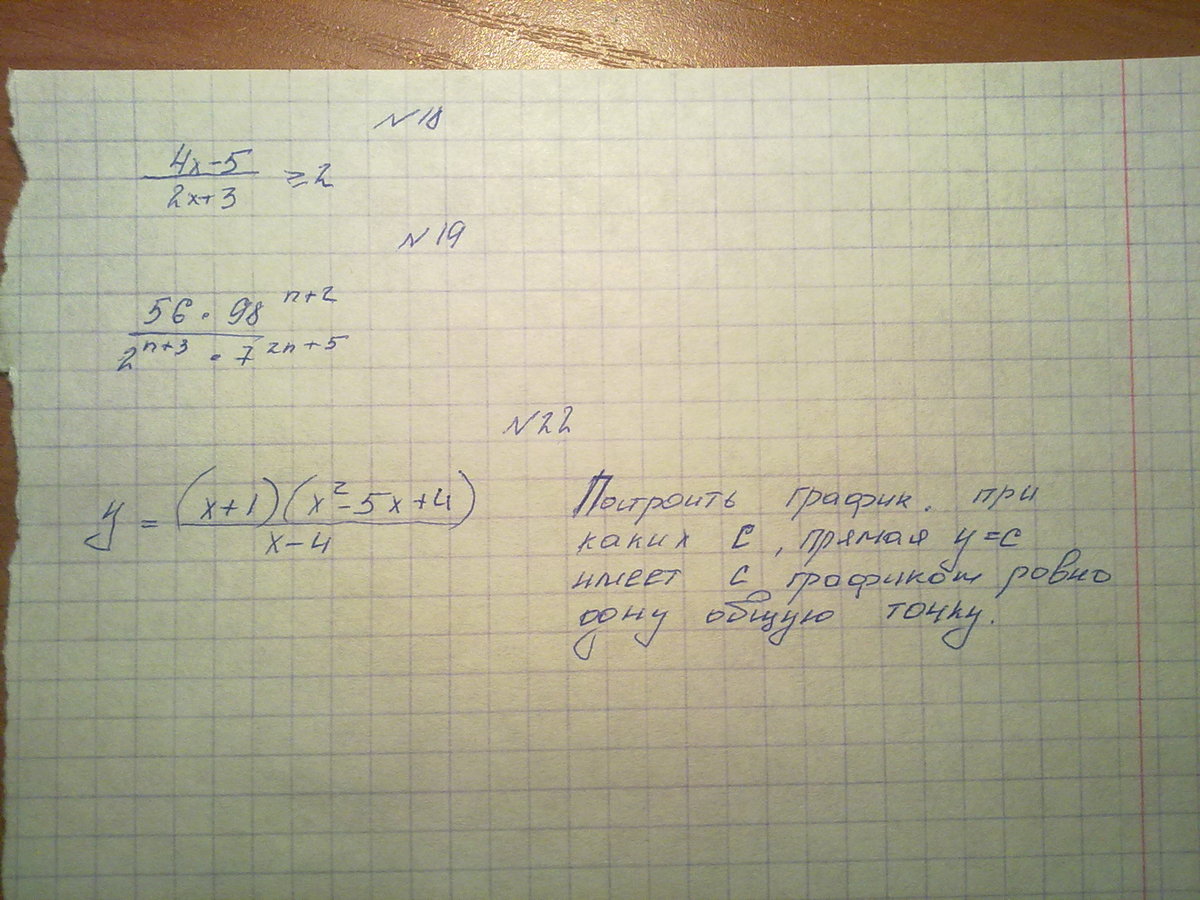 №18
(4x-5)/(2x+3) ≥ 2
№19
(56 · 98^(n+2))/(2^(n+3) · 7^(2n+5))
№22
y = ((x+1)(x²-5x+4))/(x-4)
Построить график. при
каких С, прямая y=c
имеет с графиком ровно
одну общую точку.